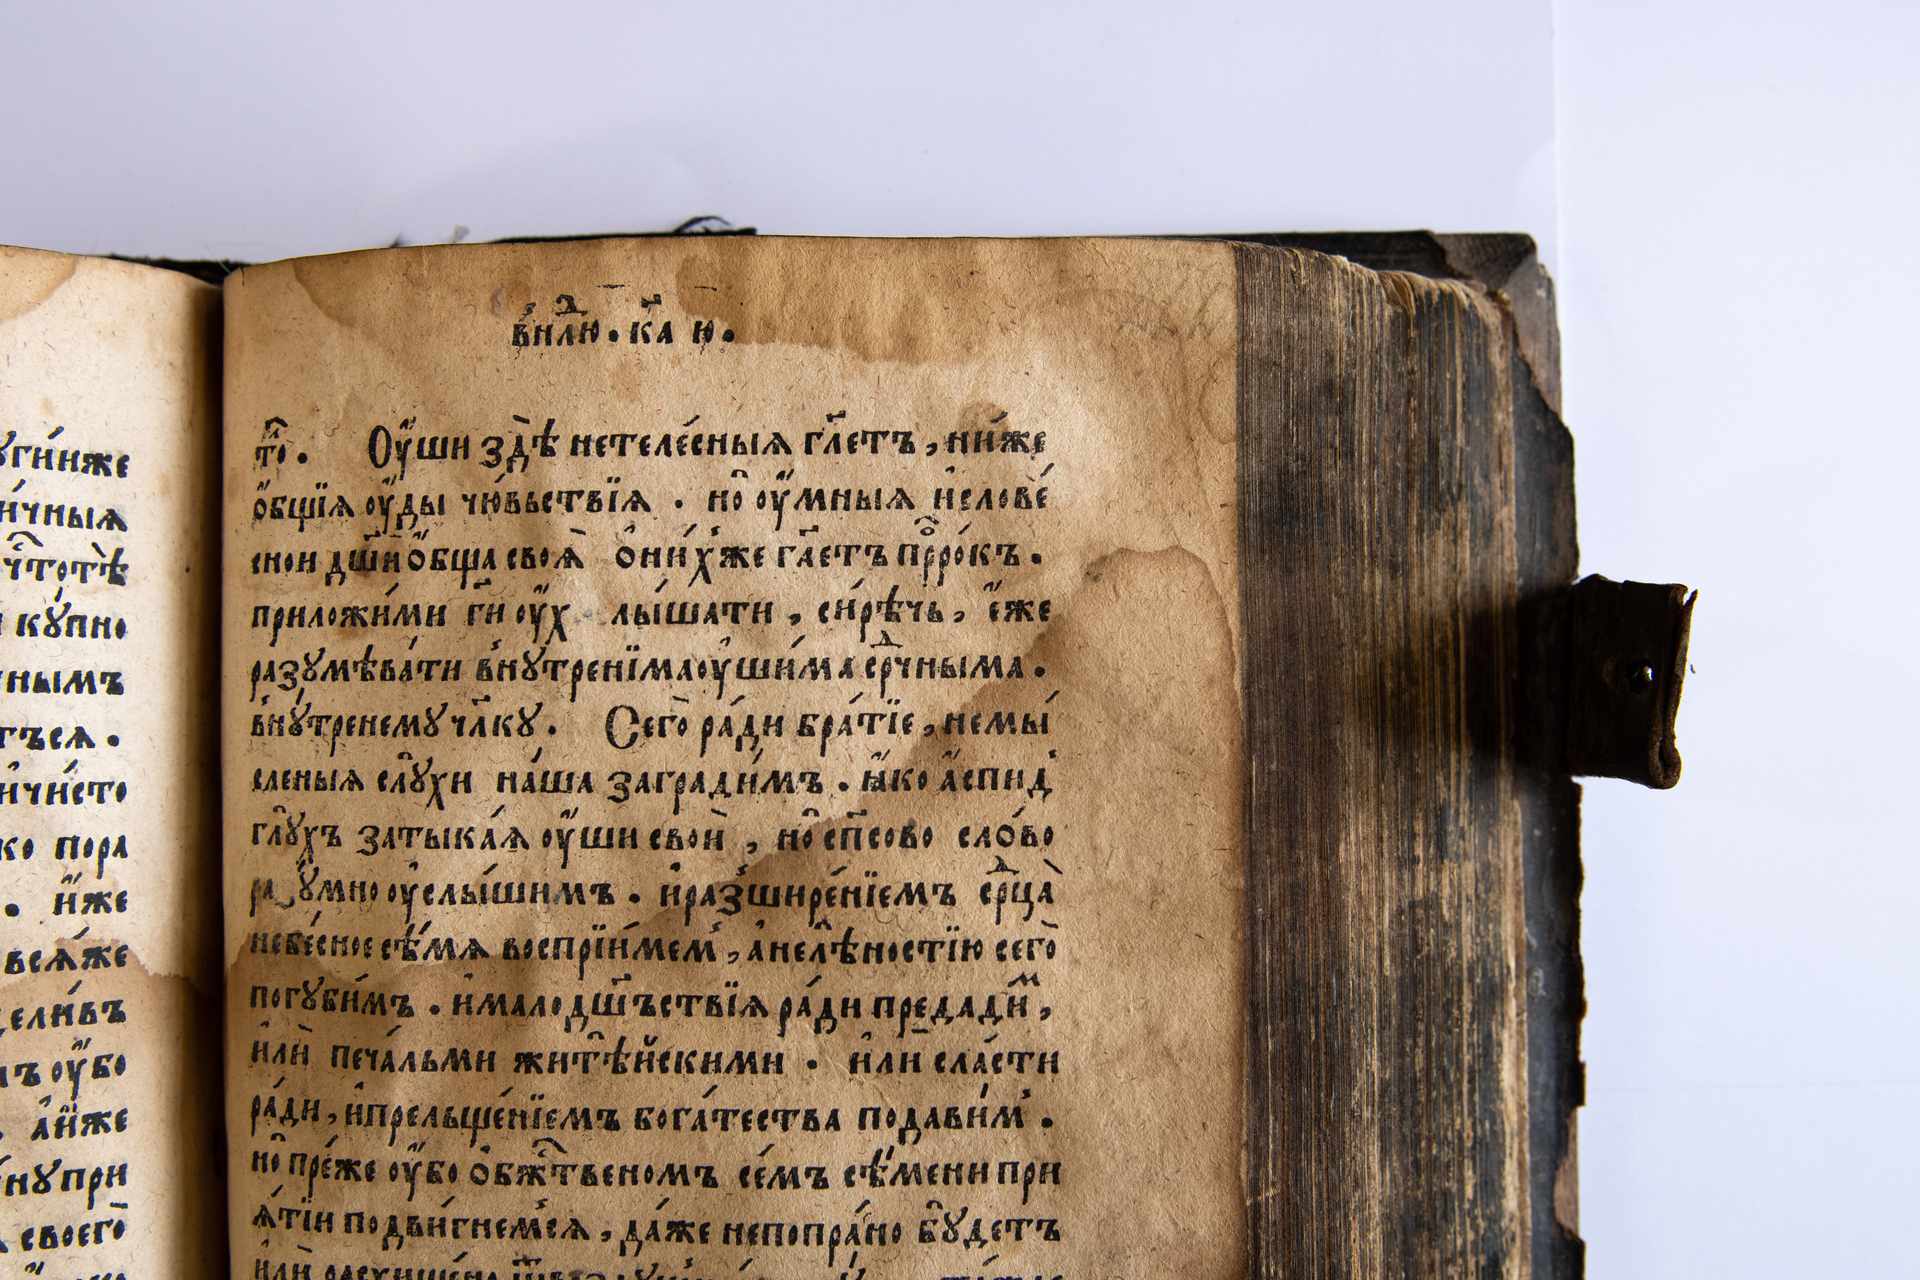 угі́иже
и́чныѧ
что̀тѣ
кꙋ́пно
нымъ
тъсѧ .
ичи́сто
ко пора
. и҆́же
всѧ́же
дели́въ
оу҆́бо
а҆и҆́же
нꙋпри
своего̀
вн҃лю . ка ю .
то̑ . Оу҆́ши здѣ̀ нетеле́сныѧ гл҃етъ , ни́же
ѻ҆́бщїѧ оу҆́ды чю́вьствїѧ . но̑ оу҆́мныѧ и҆слове́
сной дш҃и̑ ѻ҆́бща своѧ̀ ѻ҆ни́хже гл҃етъ прⷪ҇ро́къ .
приложи́ми гн҃и оу҆́х лы́шати , си́рѣчь , є҆́же
разꙋмѣва́ти внꙋ́тренїма оу҆ши́ма срⷣчныма .
внꙋ́тренемꙋ чл҃кꙋ . Сего̀ ра́ди бра́тїе , немы́
сленыѧ слꙋ́хи на́ша загради́мъ . ꙗ҆́ко а҆́спид̾
глꙋ́хъ затыка́ѧ оу҆́ши своѝ , но̑ сп҃сово сло́во
оу҆слы́шимъ . и҆раз̾шире́нїемъ срⷣца̀
небе́сное сѣ́мѧ воспрїи́мем̾ , а҆нелѣ́ностїю сего̀
погꙋби́мъ . и҆малодш҃ъствїѧ ра́ди предадиⷨ ,
и҆лѝ печа́льми жите́йскими . и҆лѝ сла́сти
ра́ди , и҆прельще́нїемъ бога́тества подави́м̾ .
но̑ пре́же оу҆́бо ѻ҆бжⷭ҇твеномъ се́мъ сѣ́мени при
ѧ́тїи подви́гнем̾сѧ , да́же непопра́но бꙋ́детъ